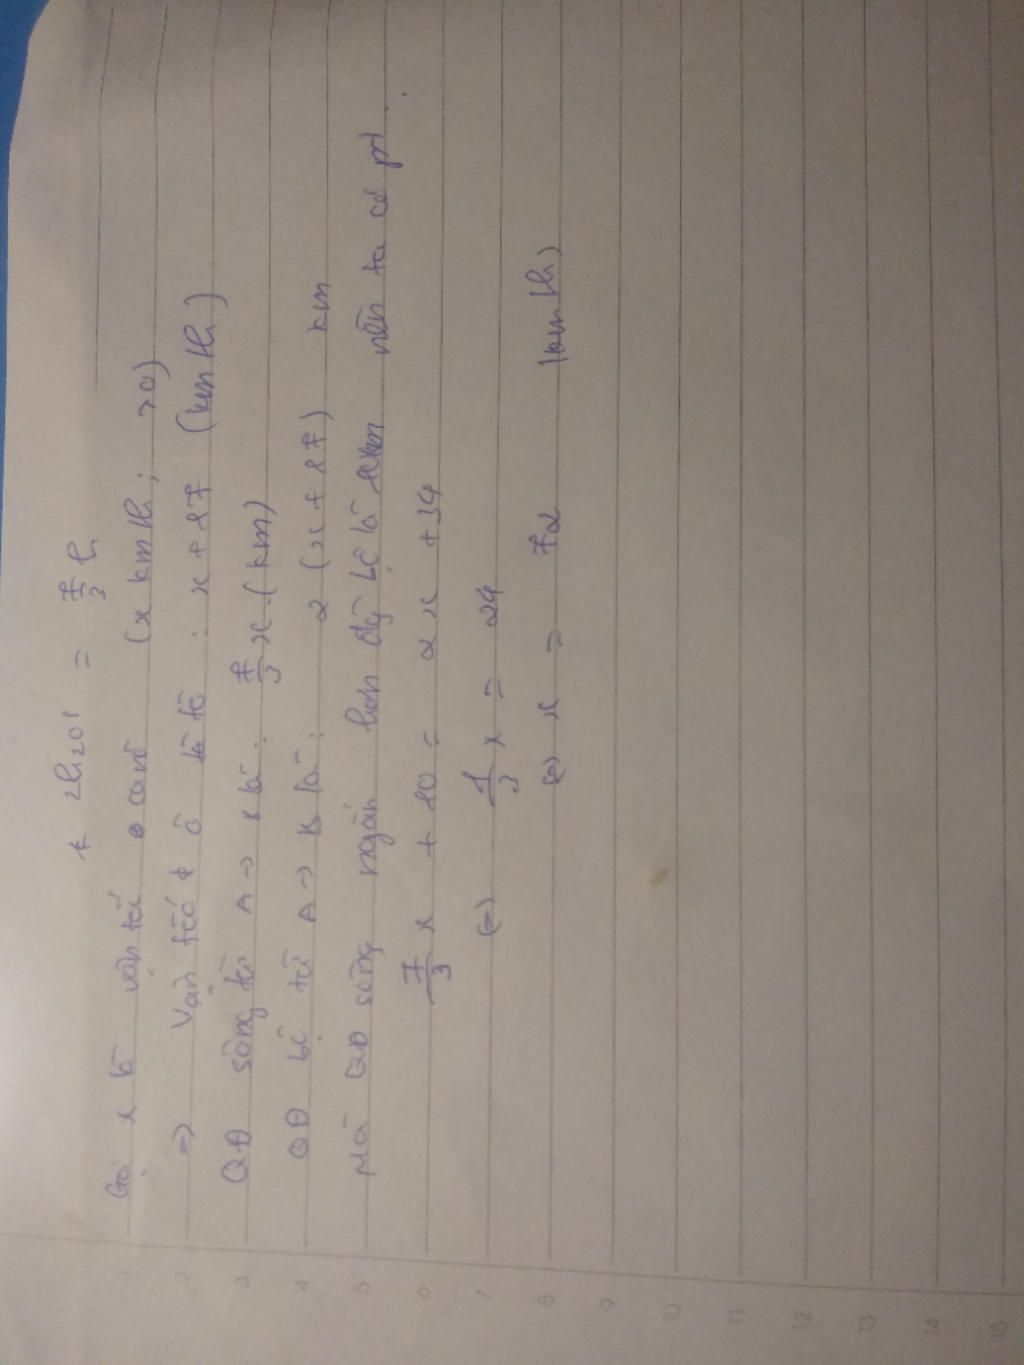 * 2h20' = 7/3 h
Gọi x là vận tốc canô (x km/h; >0)
=> Vận tốc ô tô : x + 17 (km/h)
QĐ sông từ A -> K là: 7/3 x (km)
QĐ bộ từ A -> K là: 2 (x + 17) km
Mà QĐ sông ngắn hơn đg bộ là 10km nên ta có pt
7/3 x + 10 = 2x + 34
(=) 1/3 x = 24
(=) x = 72 (km/h)
1
2
3
4
5
6
7
8
9
10
11
12
13
14
15